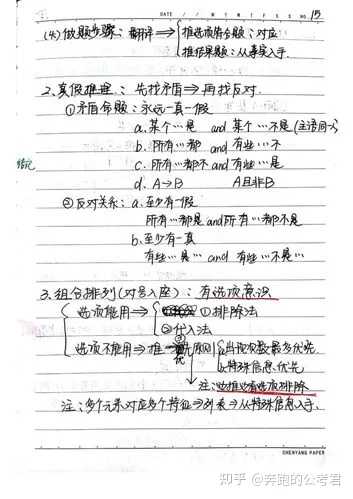 DATE
15
(4) 做题步骤：翻译⇒ 推选项指命题：对应
推结果题：从事实入手.
2. 真假推理：先找矛盾⇒再找反对.
①矛盾命题：永远一真一假
a. 某个…是 and 某个…不是(主语同一)
b. 所有…都 and 有些…不
c. 所有…都不 and 有些…是
d. A→B A且非B
②反对关系：a. 至少有一假
所有…都是 and 所有…都不是
b. 至少有一真
有些…是… and 有些…不是…
3. 组合排列(对号入座)：有选项意识
选项能用⇒ ①排除法
②代入法
选项不能用⇒推 原则 出现次数最多优先
特殊信息优先
注：边推边看选项排除
注：多个元素对应多个特征⇒列表⇒从特殊信息入手.
SHENYANG PAPER
知乎 @奔跑的公考君